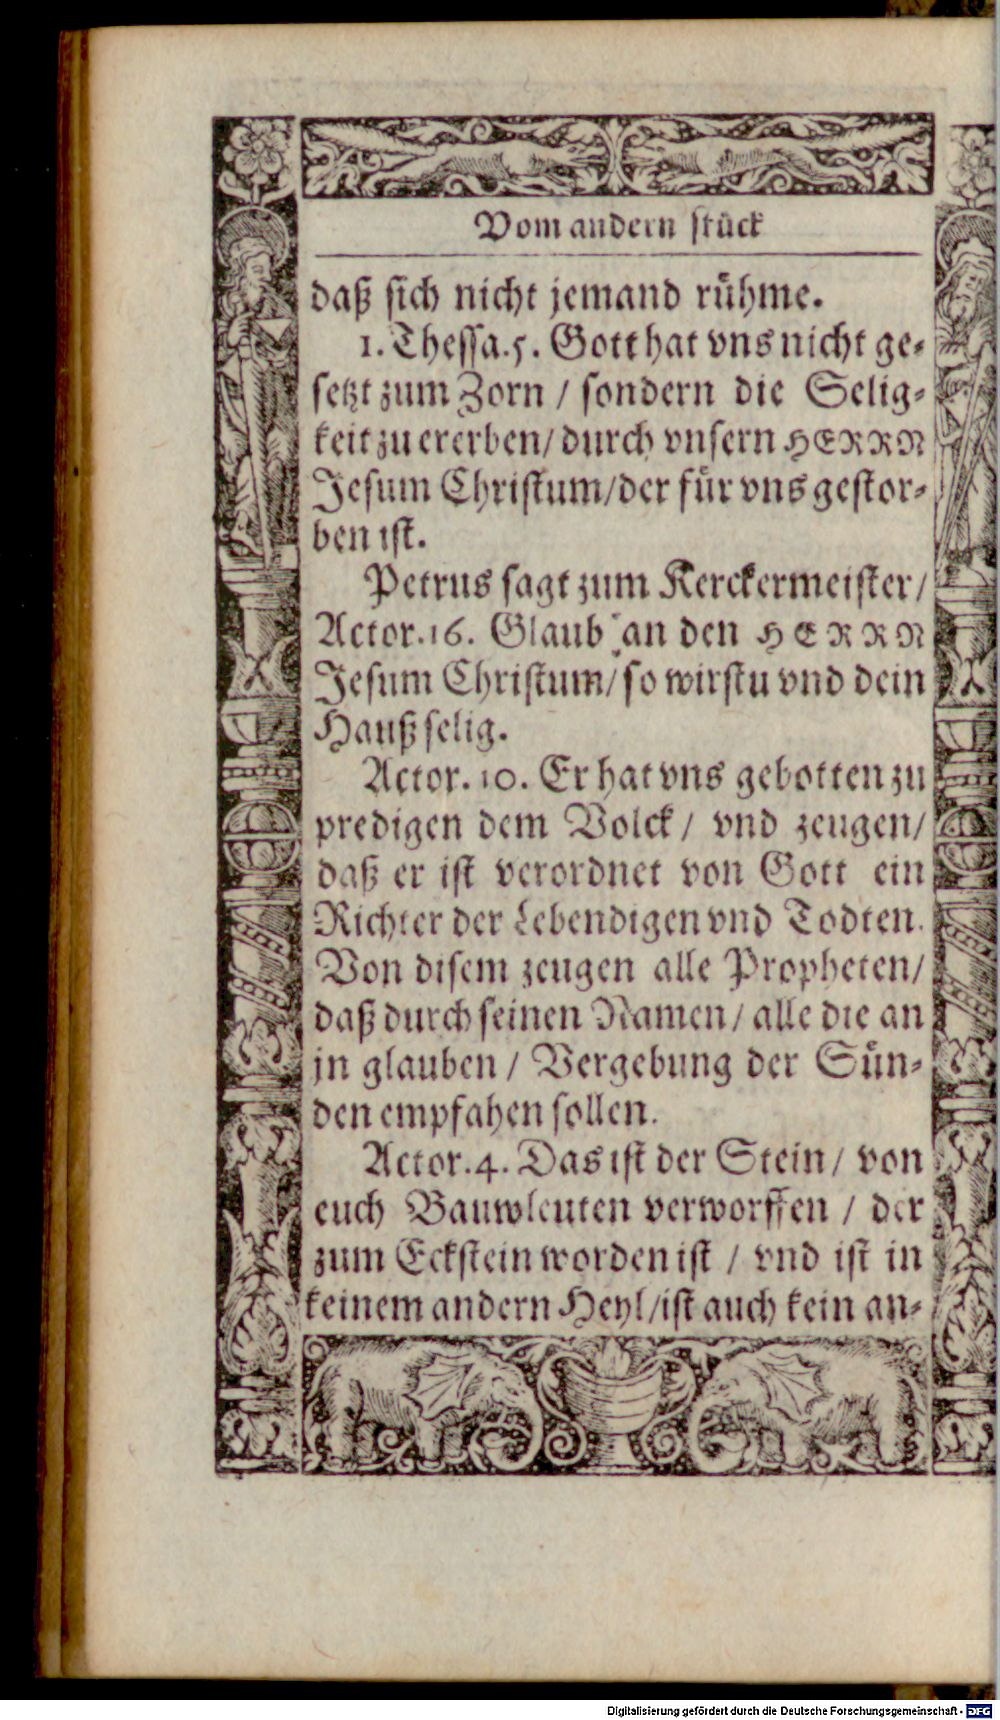 Vom andern stück
daß sich nicht jemand rühme.
1. Thessa. 5. Gott hat vns nicht ge-
setzt zum Zorn / sondern die Selig-
keit zu ererben / durch vnsern HERRN
Jesum Christum / der für vns gestor-
ben ist.
Petrus sagt zum Kerckermeister /
Actor. 16. Glaub an den HERRN
Jesum Christum / so wirstu vnd dein
Hauß selig.
Actor. 10. Er hat vns gebotten zu
predigen dem Volck / vnd zeugen /
daß er ist verordnet von Gott ein
Richter der Lebendigen vnd Todten.
Von disem zeugen alle Propheten /
daß durch seinen Namen / alle die an
jn glauben / Vergebung der Sün-
den empfahen sollen.
Actor. 4. Das ist der Stein / von
euch Bauwleuten verworffen / der
zum Eckstein worden ist / vnd ist in
keinem andern Heyl / ist auch kein an-
Digitalisierung gefördert durch die Deutsche Forschungsgemeinschaft - DFG